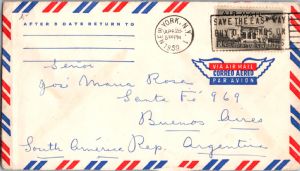 AFTER 5 DAYS RETURN TO
NEW YORK, N.Y. 1
APR 25
1950
AIR MAIL
SAVE THE EASY WAY
BUY U.S. BONDS
VIA AIR MAIL
CORREO AEREO
PAR AVION
Señor
José Maria Rosa
Santa Fé 969
Buenos Aires
South America Rep. Argentina